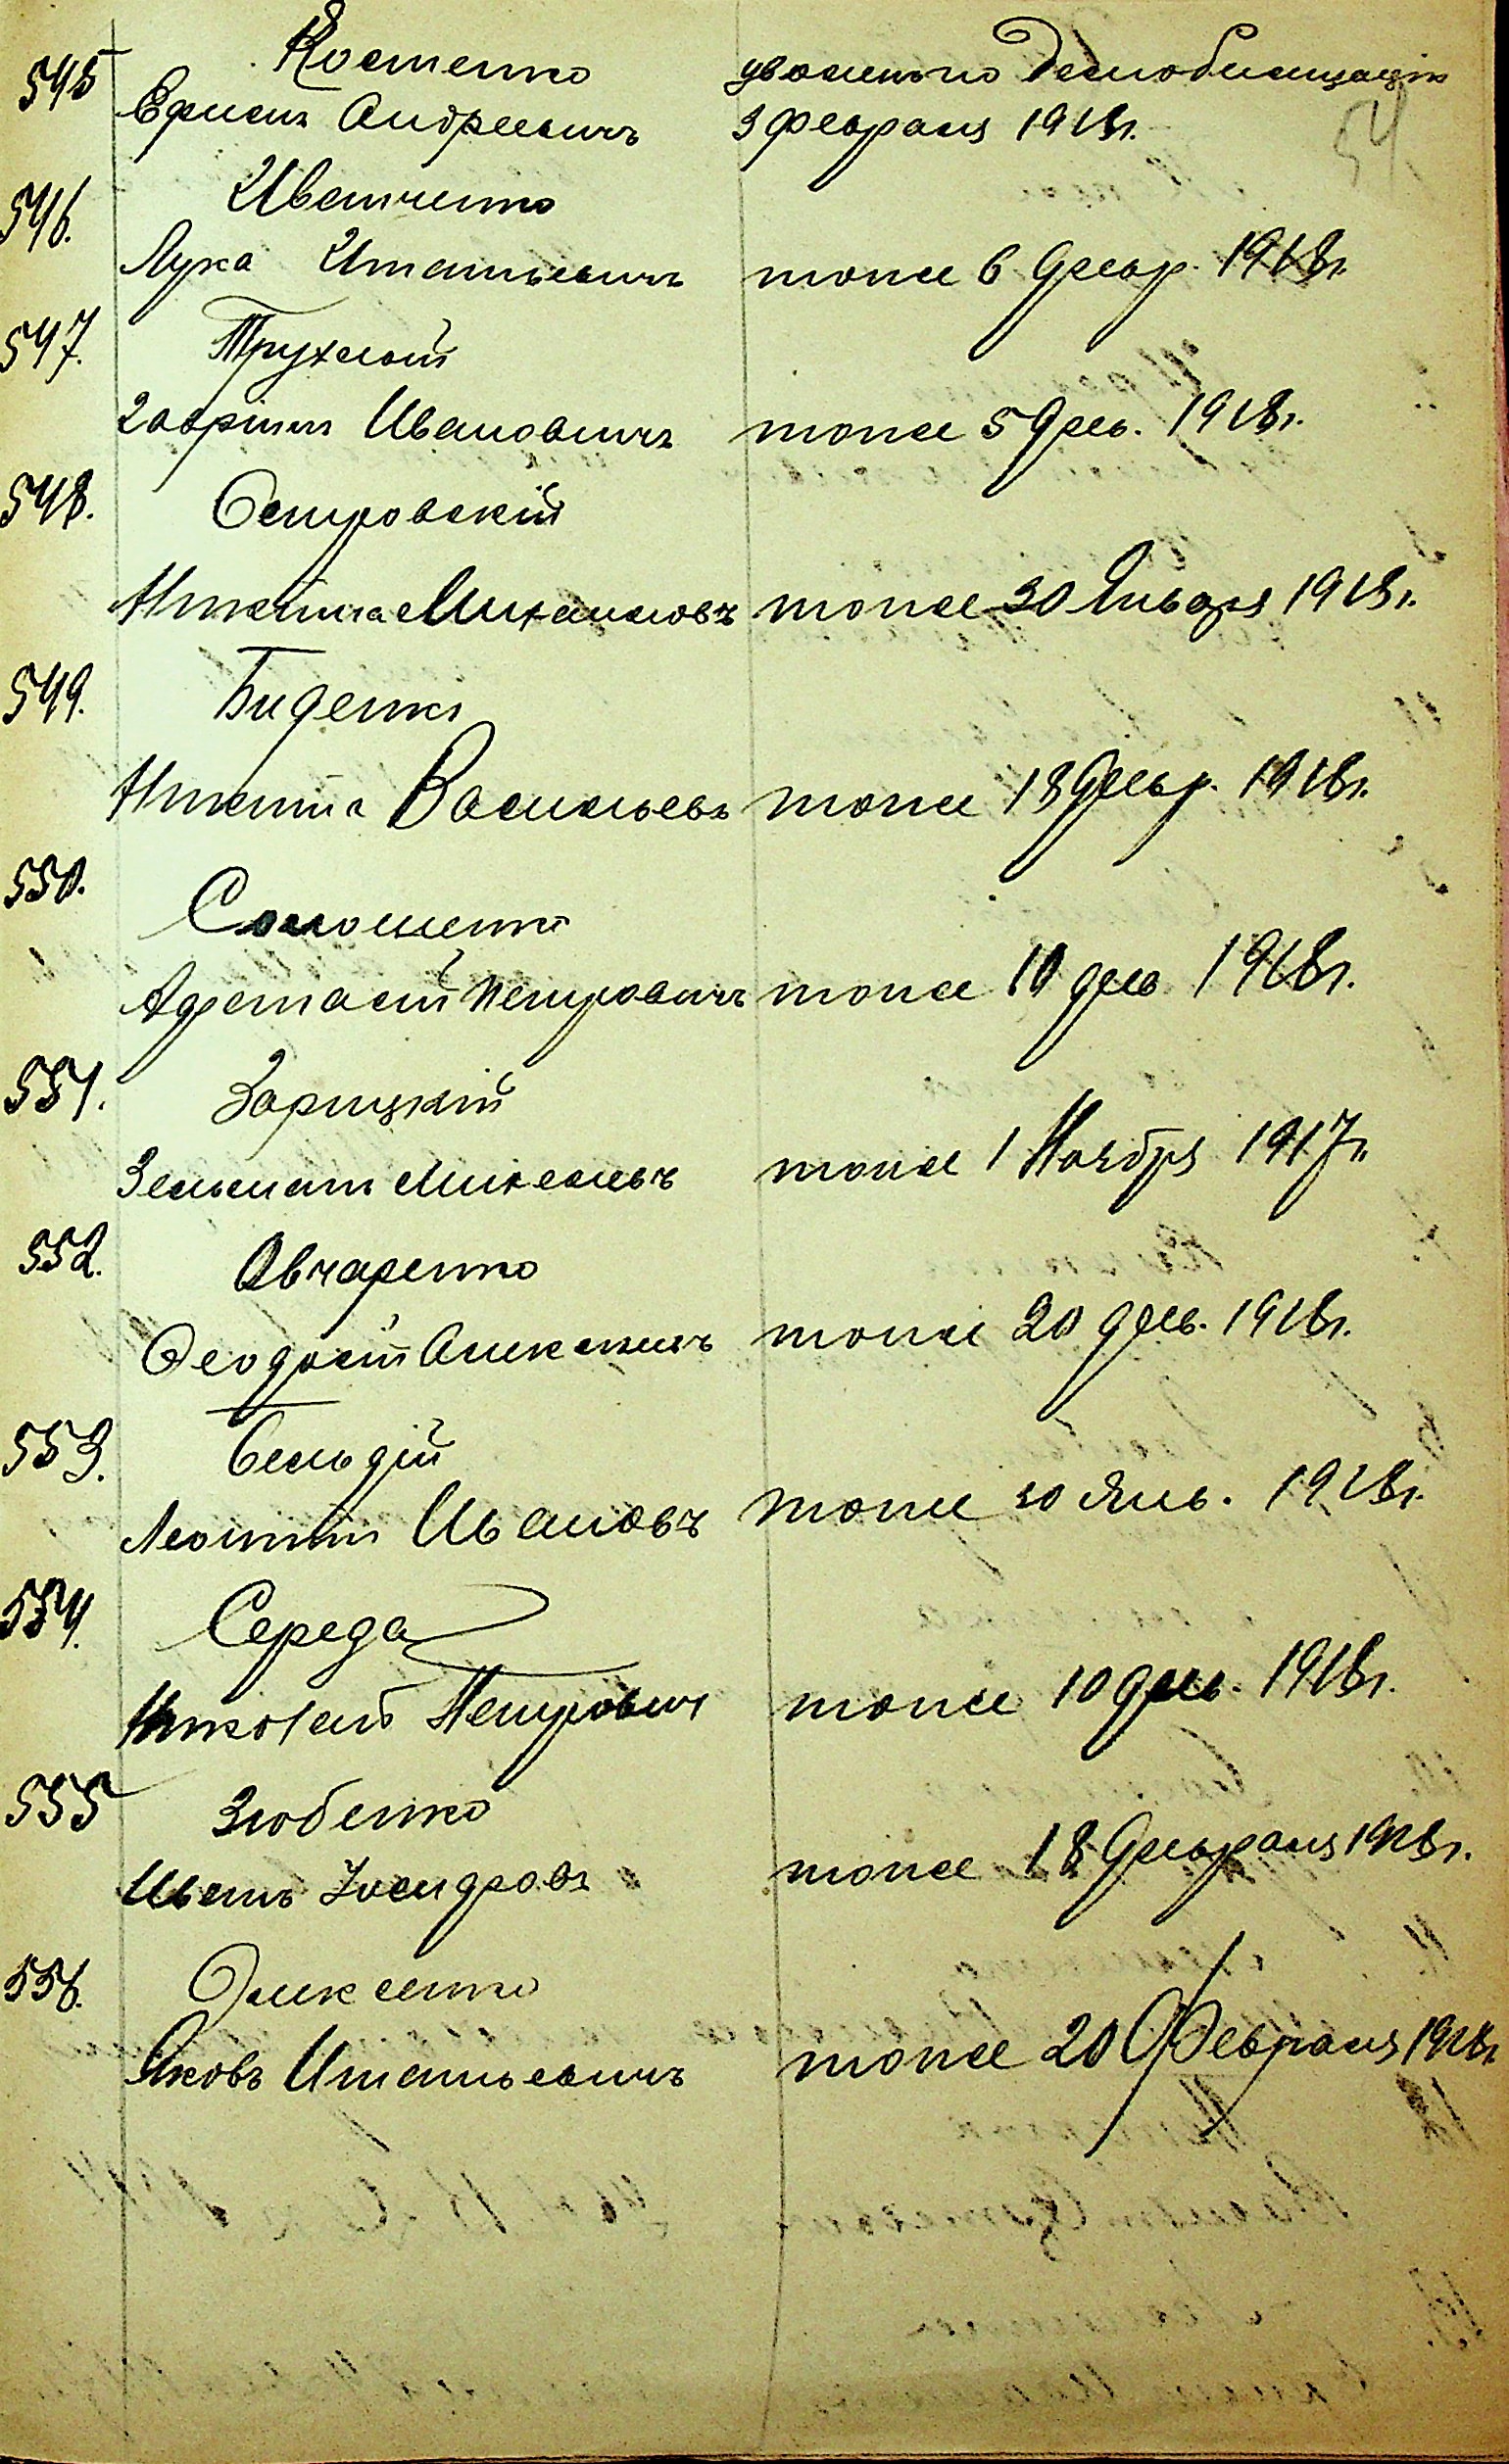 545 Костенко уволенъ по Демобилизаціи
Ефимъ Андреевичъ 3 Февраля 1918г.
54
546. Иванченко
Лука Игнатьевичъ тоже 6 Февр. 1918г.
547. Трухлый
Гавріилъ Ивановичъ тоже 5 Фев. 1918г.
548. Островскій
Никита Михайловъ тоже 30 Января 1918г.
549. Биденко
Никита Васильевъ тоже 18 Февр. 1918г.
550. Соломенко
Афанасій Петровичъ тоже 10 фев 1918г.
551. Зарицкій
Михайловъ тоже 1 Ноября 1917г.
552. Овчаренко
Феодосій Алексеевъ тоже 20 фев. 1918г.
553. Бельдій
Леонтій Ивановъ тоже 30 Янв. 1918г.
554. Середа
Николай Петрович тоже 10 фев. 1918г.
555 Зюбенко
Иванъ Исидровъ тоже 18 Февраля 1918г.
556. Оликсенко
Яковъ Игнатьевичъ тоже 20 Февраля 1918г